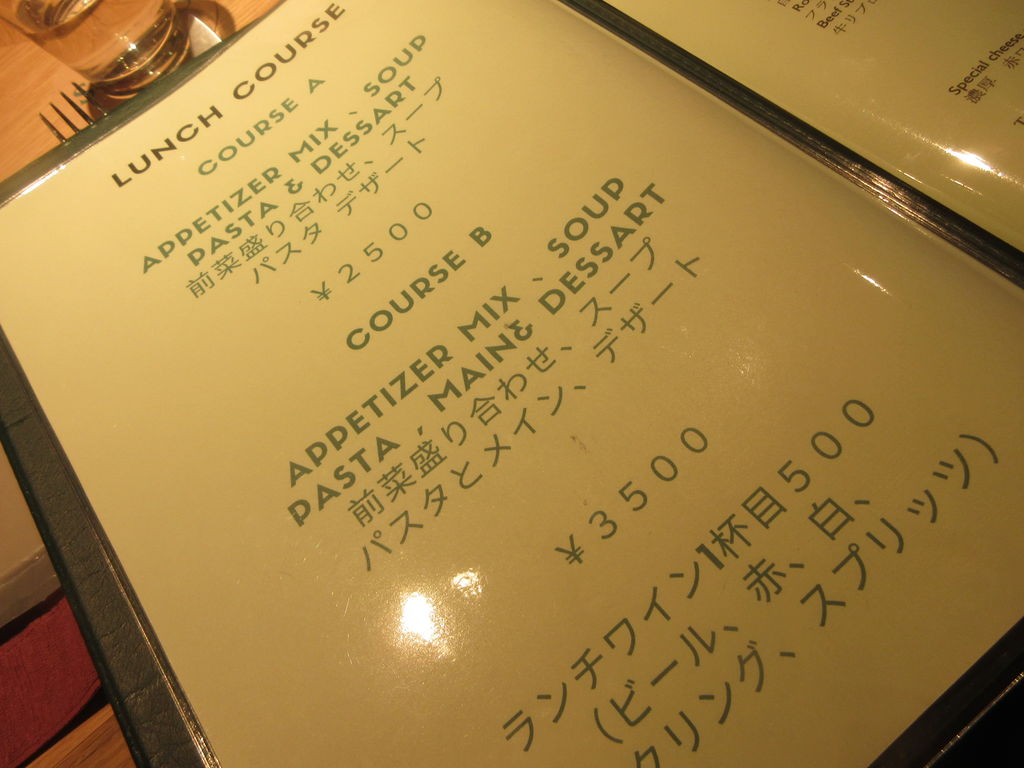 LUNCH COURSE
COURSE A
APPETIZER MIX 、SOUP
PASTA & DESSART
前菜盛り合わせ、スープ
パスタ デザート
¥２５００
COURSE B
APPETIZER MIX 、SOUP
PASTA , MAIN& DESSART
前菜盛り合わせ、スープ
パスタとメイン、デザート
¥３５００
ランチワイン1杯目５００
（ビール、赤、白、
クリング、 スプリッツ）
Beef
牛リブロ
Special cheese
濃厚 赤